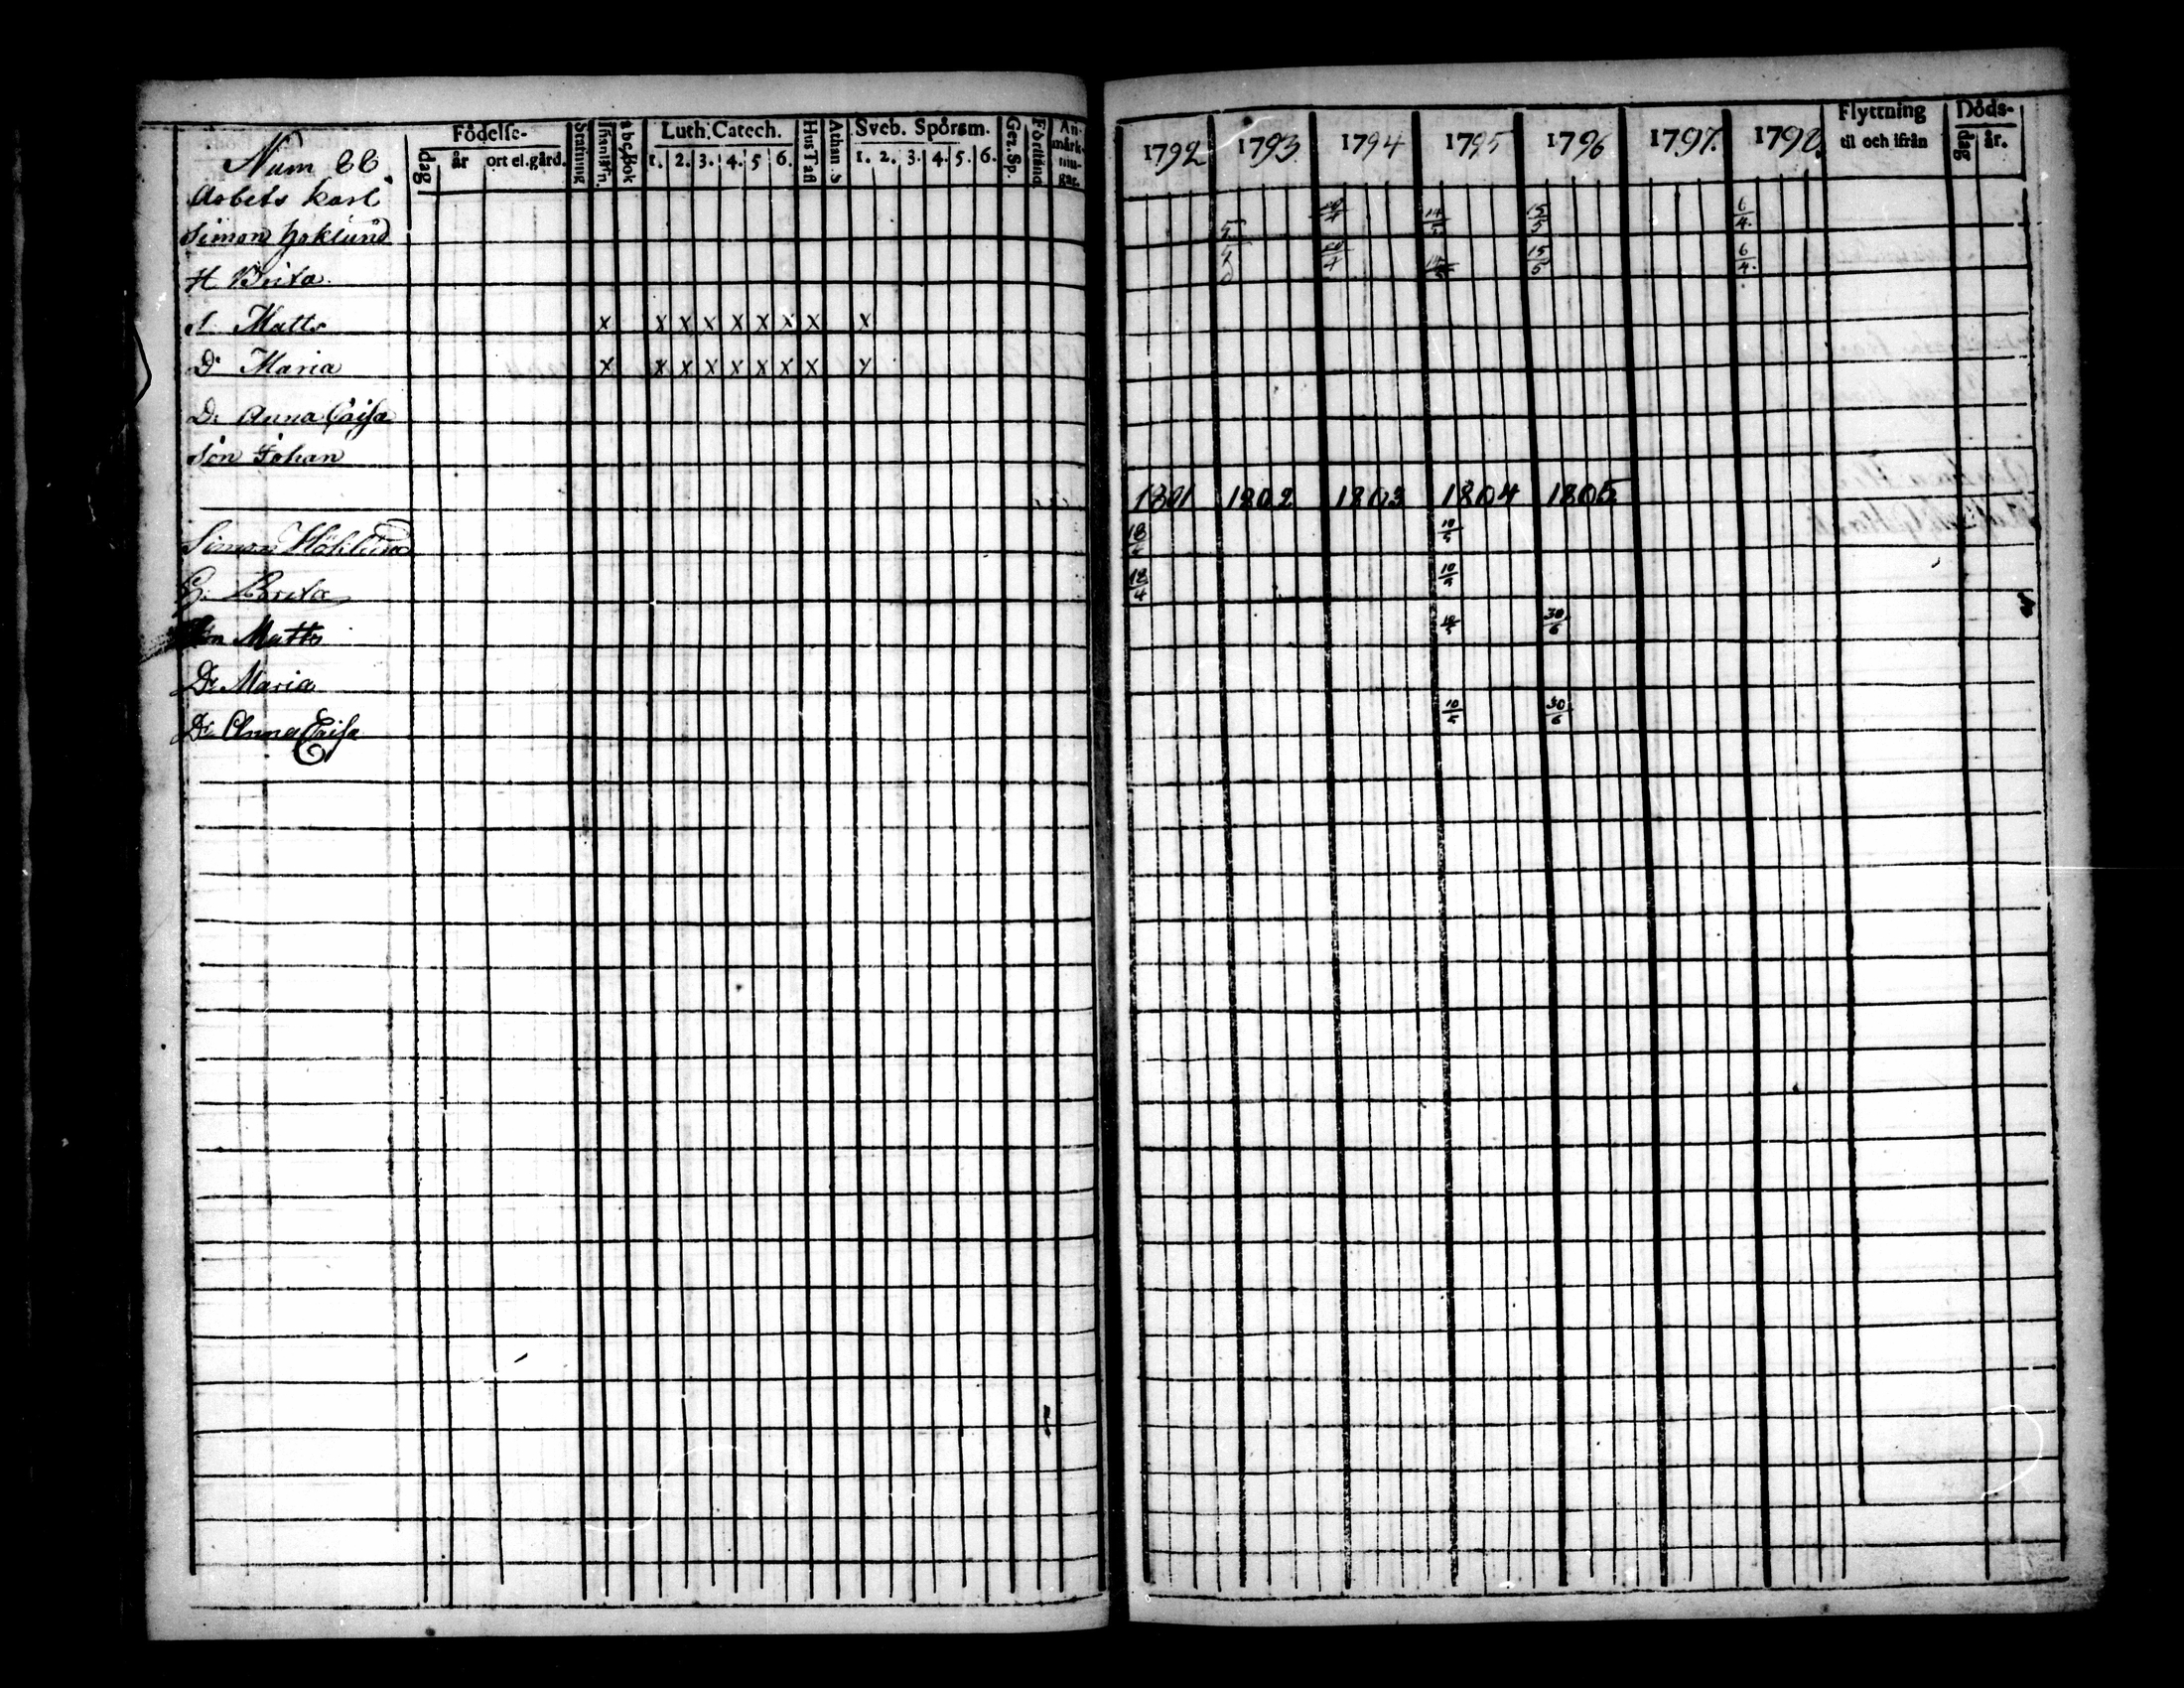 Födelse-
dag år ort el. gård.
Stafning
Innanl'n.
abc Bok
Luth. Catech.
1. 2. 3. 4. 5 6.
Hus Tafl
Athan. S
Sveb. Spörsm.
1. 2. 3. 4. 5. 6.
Gez. Sp.
Förstånd
An-
märk-
nin-
gar.
1792 1793 1794 1795 1796 1797. 1798.
Flyttning
til och ifrån
Döds-
dag år.
Num 88.
Arbets karl
Simon Höklund 10/4 14/5 15/5 6/4
H. Brita 10/4 14/5 15/5 6/4.
S. Matts x x x x x x x x x
Dr Maria x x x x x x x x x
Dr Anna Caisa
Son Johan
1801 1802 1803 1804 1805
Simon Höklund 18/4 10/5
H. Brita 18/4 10/5
Son Matts 10/5 30/6
Dr Maria
Dr Anna Caisa 10/5 30/6